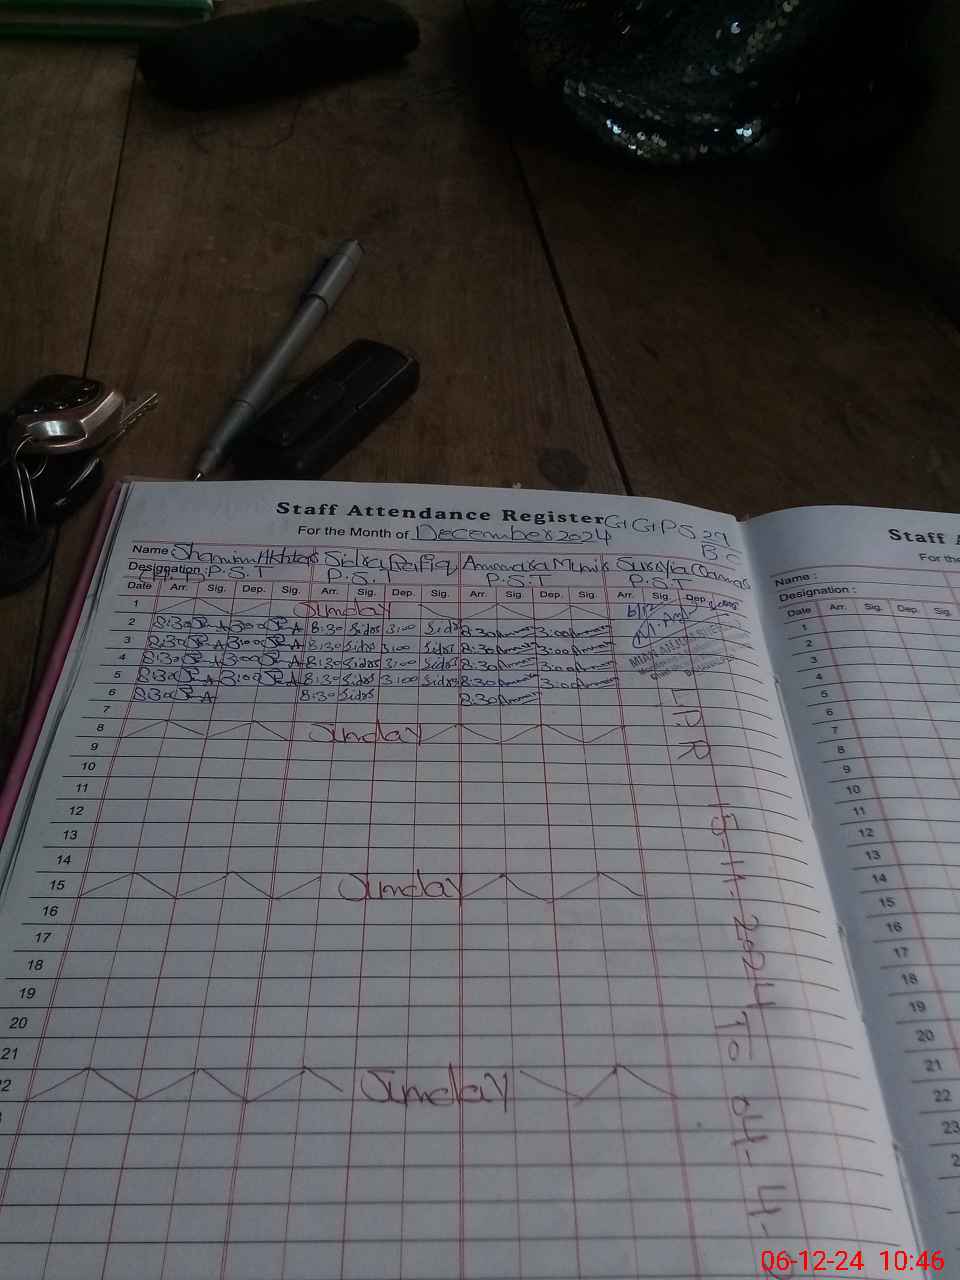 Staff Attendance Register GGPS 29
For the Month of December 2024 B C
Name Shamim Akhtar Sidra Rafiq Ammara Munir Surryia
Designation P.S.T P.S.T P.S.T P.S.T
Date Arr. Sig. Dep. Sig. Arr. Sig. Dep. Sig. Arr. Sig. Dep. Sig. Arr. Sig. Dep.
1 Sunday
2 8:30 3:00 8:30 Sidra 3:00 Sidra 8:30 3:00
3 8:30 3:00 8:30 Sidra 3:00 Sidra 8:30 3:00
4 8:30 3:00 8:30 Sidra 3:00 Sidra 8:30 3:00
5 8:30 3:00 8:30 Sidra 3:00 Sidra 8:30 3:00
6 8:30 8:30 Sidra 8:30
7
8 Sunday
9
10
11
12
13
14
15 Sunday
16
17
18
19
20
21
2 Sunday
15-11-2024 To 04-4-
Staff
For the
Name :
Designation :
Date Arr. Sig. Dep. Sig.
1
2
3
4
5
6
7
8
9
10
11
12
13
14
15
16
17
18
19
20
21
22
23
2
06-12-24 10:46